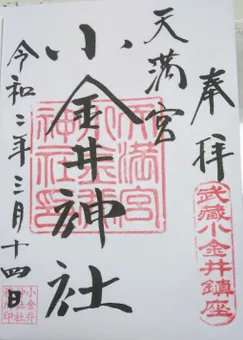 奉拝
武蔵小金井鎮座
天満宮
小金井神社
令和二年三月十四日
天満宮
小金井
神社印
小金井
神社